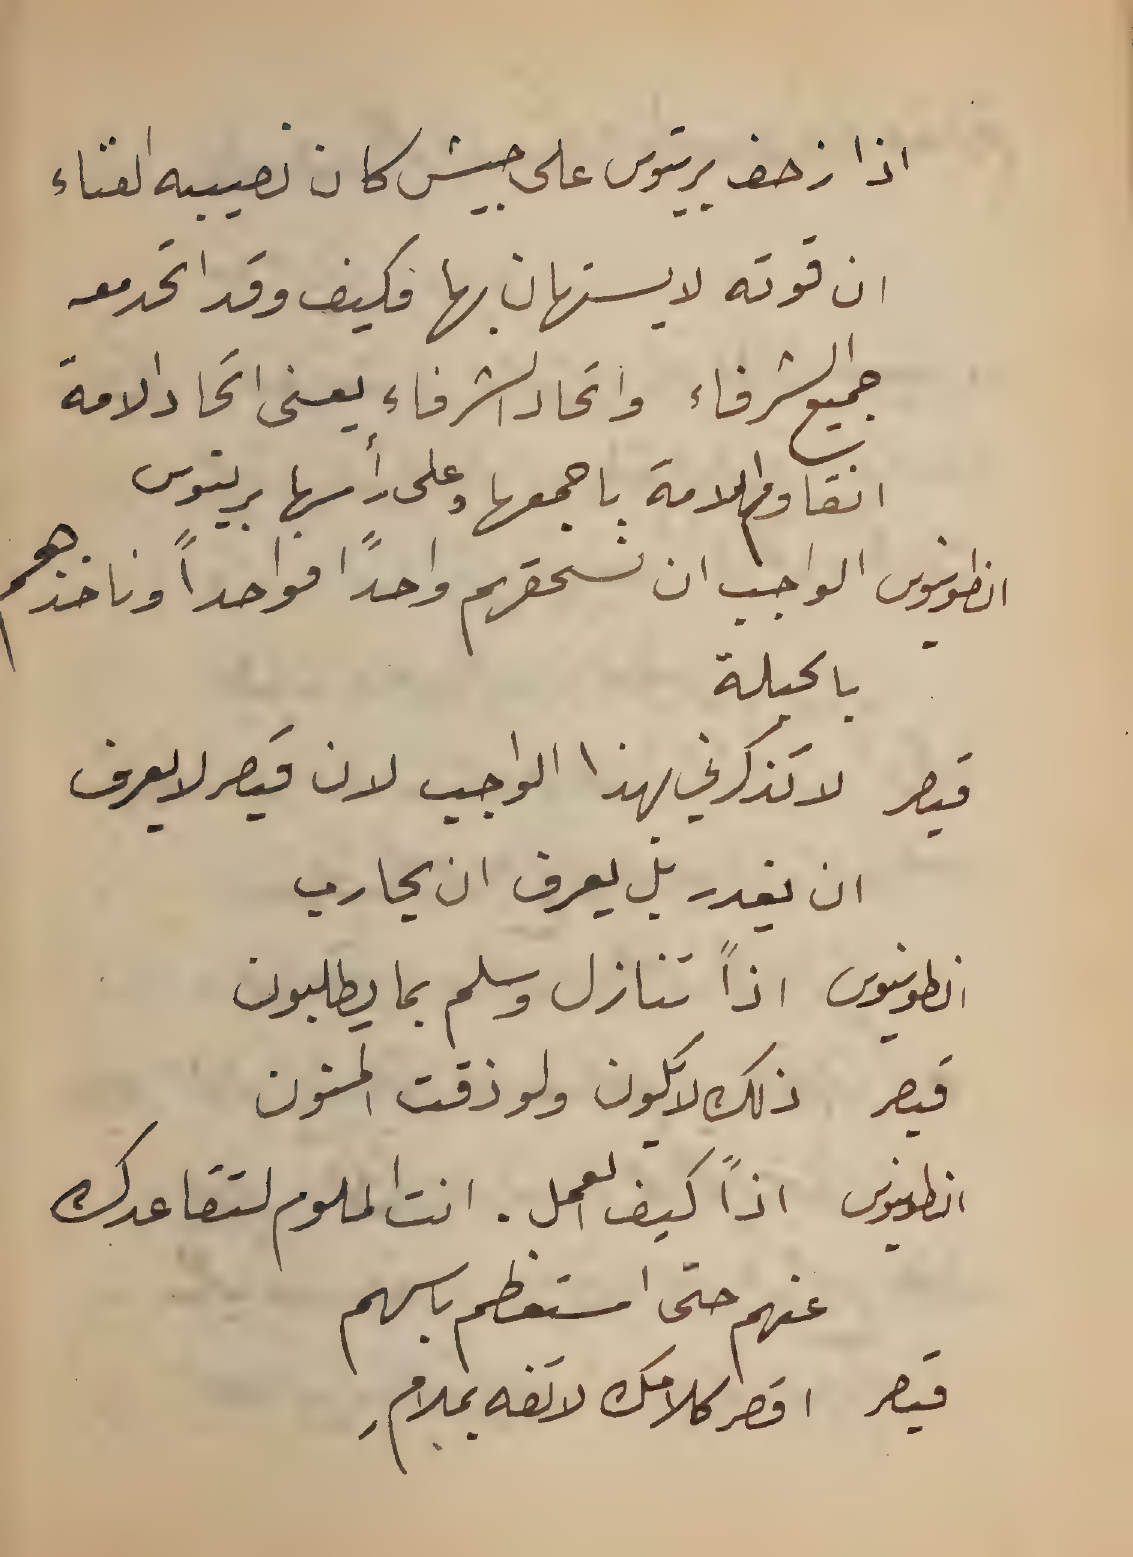 اذا زحف بريتوس على جيش كان نصيبه الفناء
ان قوته لا يستهان بها فكيف وقد اتحد معه
جميع الشرفاء واتحاد الشرفاء يعنى اتحاد الامة
انقاوم الامة باجمعها وعلى رأسها بريتوس
انطونيوس الواجب ان نسحقهم واحدًا فواحداً وناخذهم
بالحيلة
قيصر لا تذكرني بهذا الواجب لان قيصر لا يعرف
ان يغدر بل يعرف ان يحارب
انطونيوس اذاً تنازل وسلم بما يطلبون
قيصر ذلك لا يكون ولو ذقت المنون
انطونيوس اذاً كيف العمل . انت الملوم لتقاعدك
عنهم حتى استعظم باسهم
قيصر اقصر كلامك لا تفه بملامِ